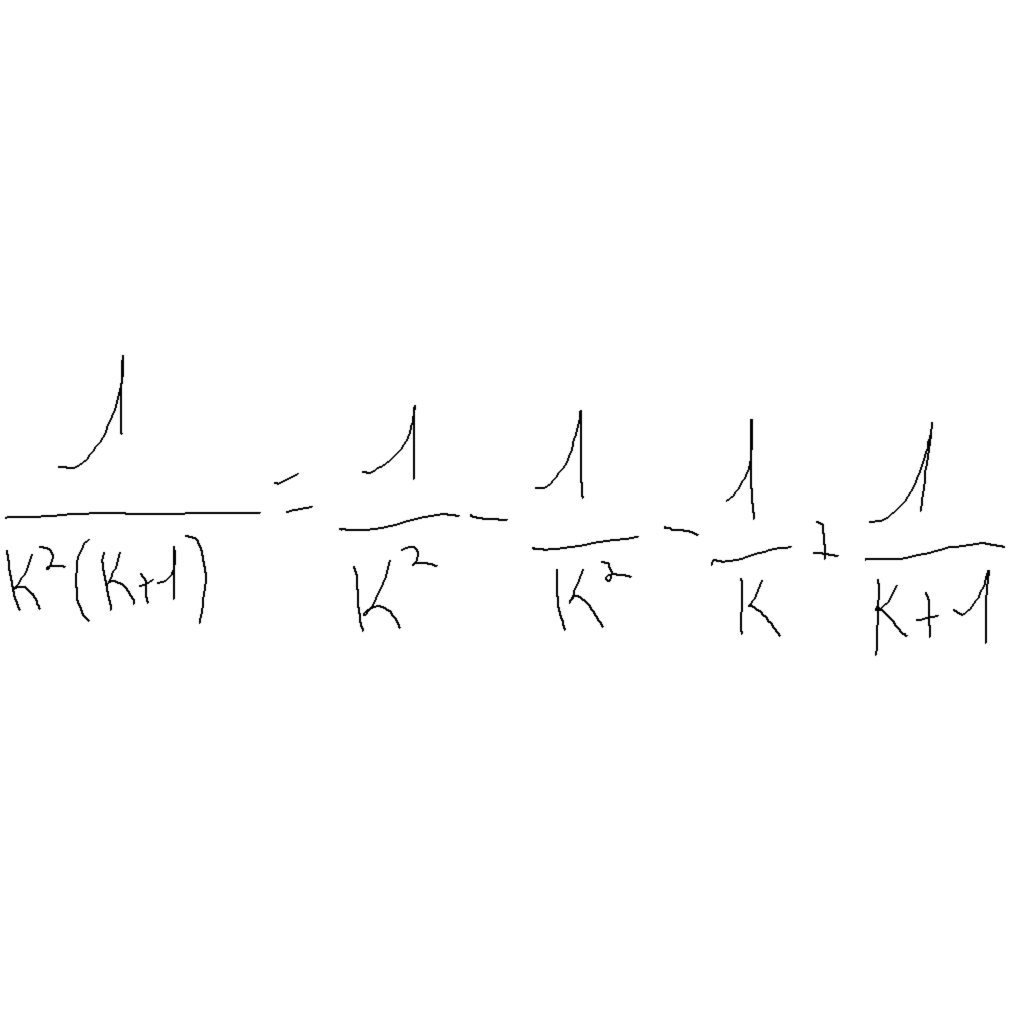 1/(K²(K+1)) = 1/K² - 1/K² - 1/K + 1/(K+1)